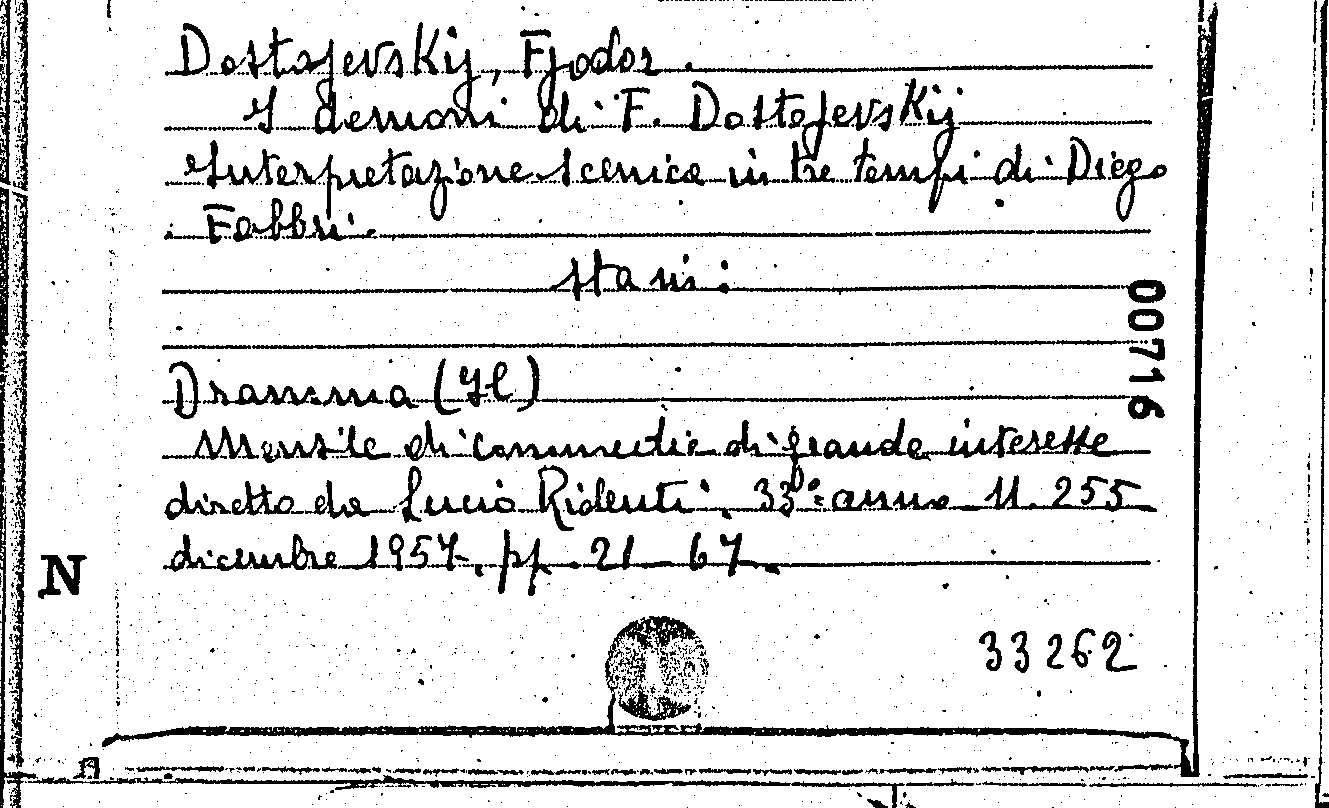 Dostojevskij, Fjodor.
I demoni di F. Dostojevskij
Interpretazione scenica in tre tempi di Diego
Fabbri.
sta in:
00716
Dramma (Il)
Mensile di commedie di grande interesse
diretto da Lucio Ridenti. 33º anno N. 255
dicembre 1957. pp. 21-67.
N
33262